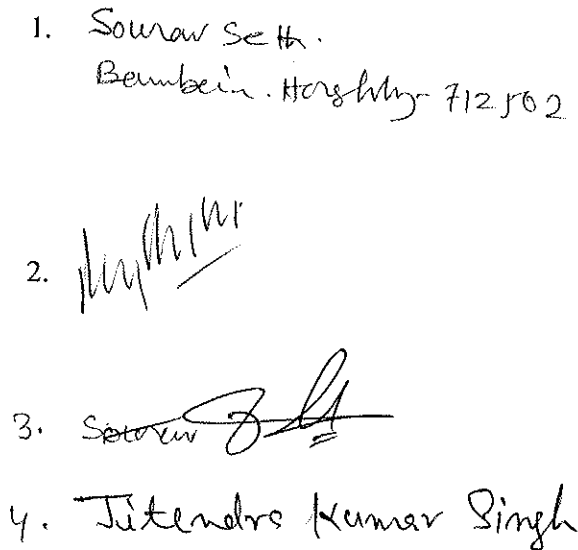 1. Sourav Seth.
Hooghly - 712502
2.
3. Sourav
4. Jitendra Kumar Singh